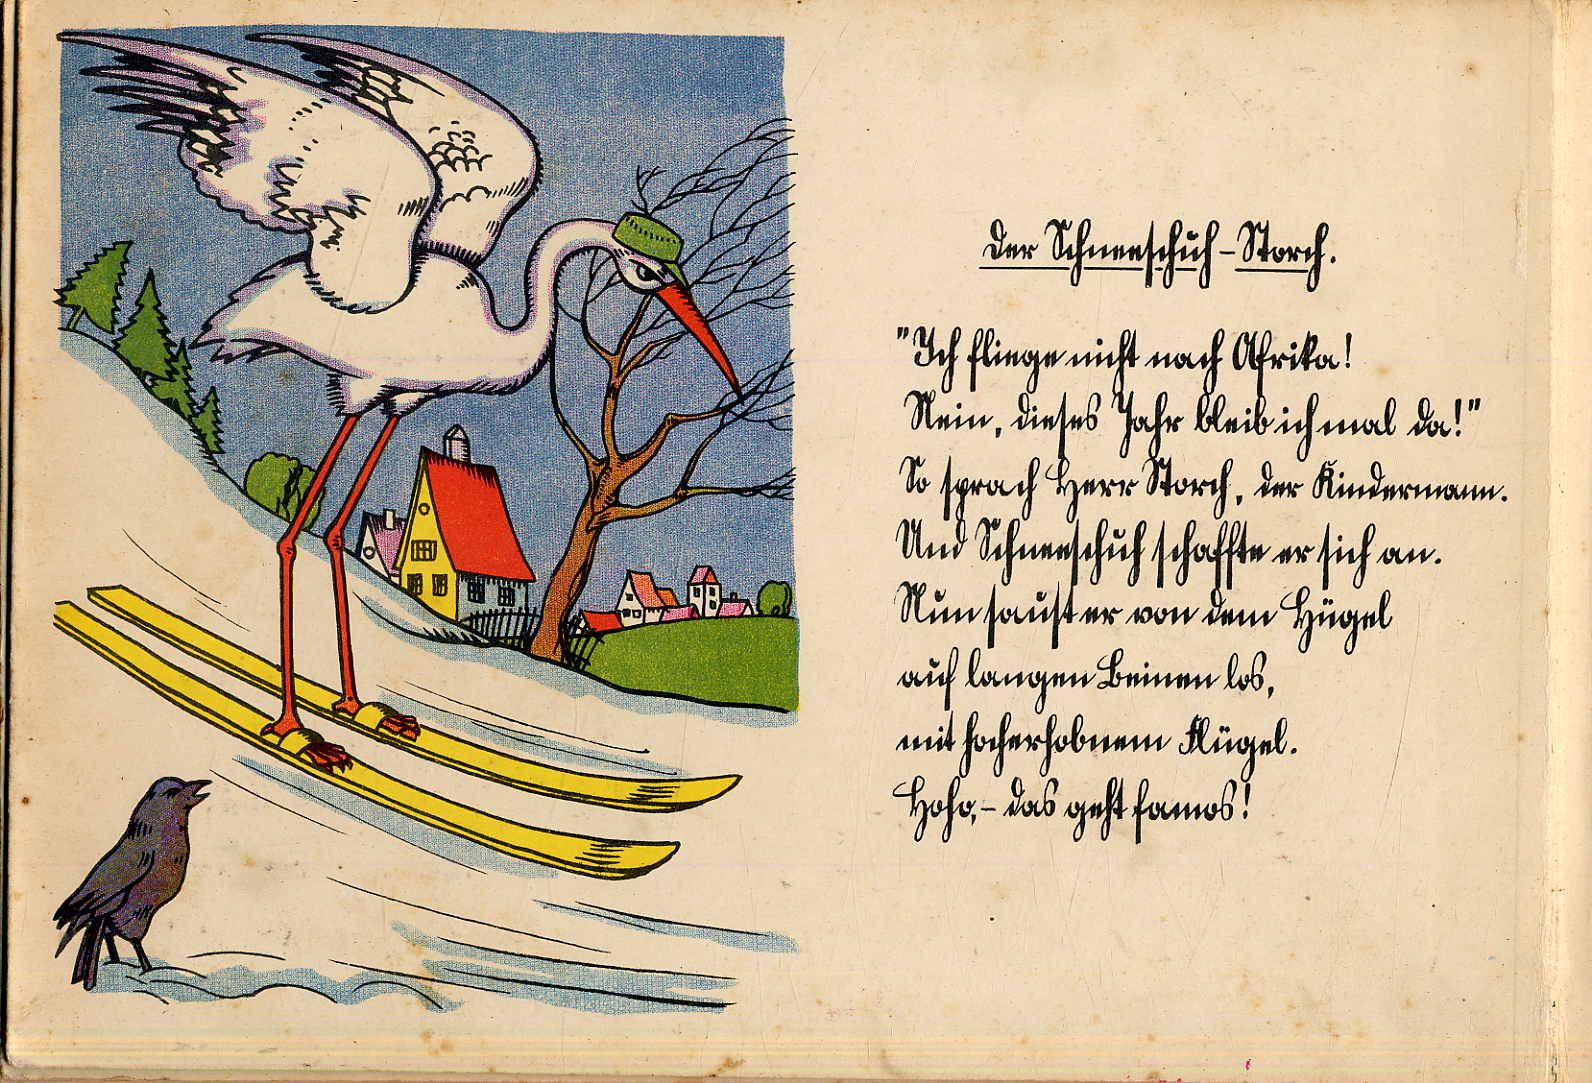 Der Schneeschuh-Storch.
"Ich fliege nicht nach Afrika!
Nein, dieses Jahr bleib ich mal da!"
So sprach Herr Storch, der Kindermann.
Und Schneeschuh schaffte er sich an.
Nun saust er von dem Hügel
auf langen Beinen los,
mit hocherhobnem Flügel.
Hoho,- das geht famos!